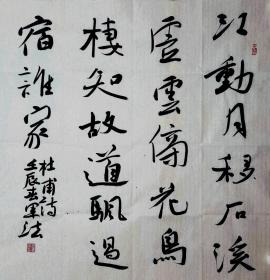 江動月移石溪
虛雲傍花鳥
棲知故道飄過
宿誰家
杜甫詩
壬辰英軍法